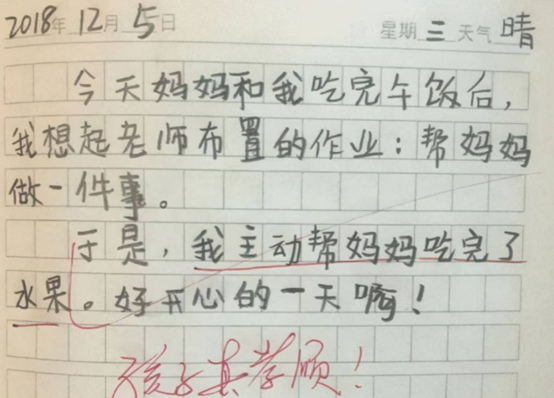 2018年12月5日 星期三 天气晴
今天妈妈和我吃完午饭后，
我想起老师布置的作业：帮妈妈
做一件事。
于是，我主动帮妈妈吃完了
水果。好开心的一天啊！
孩子真孝顺！